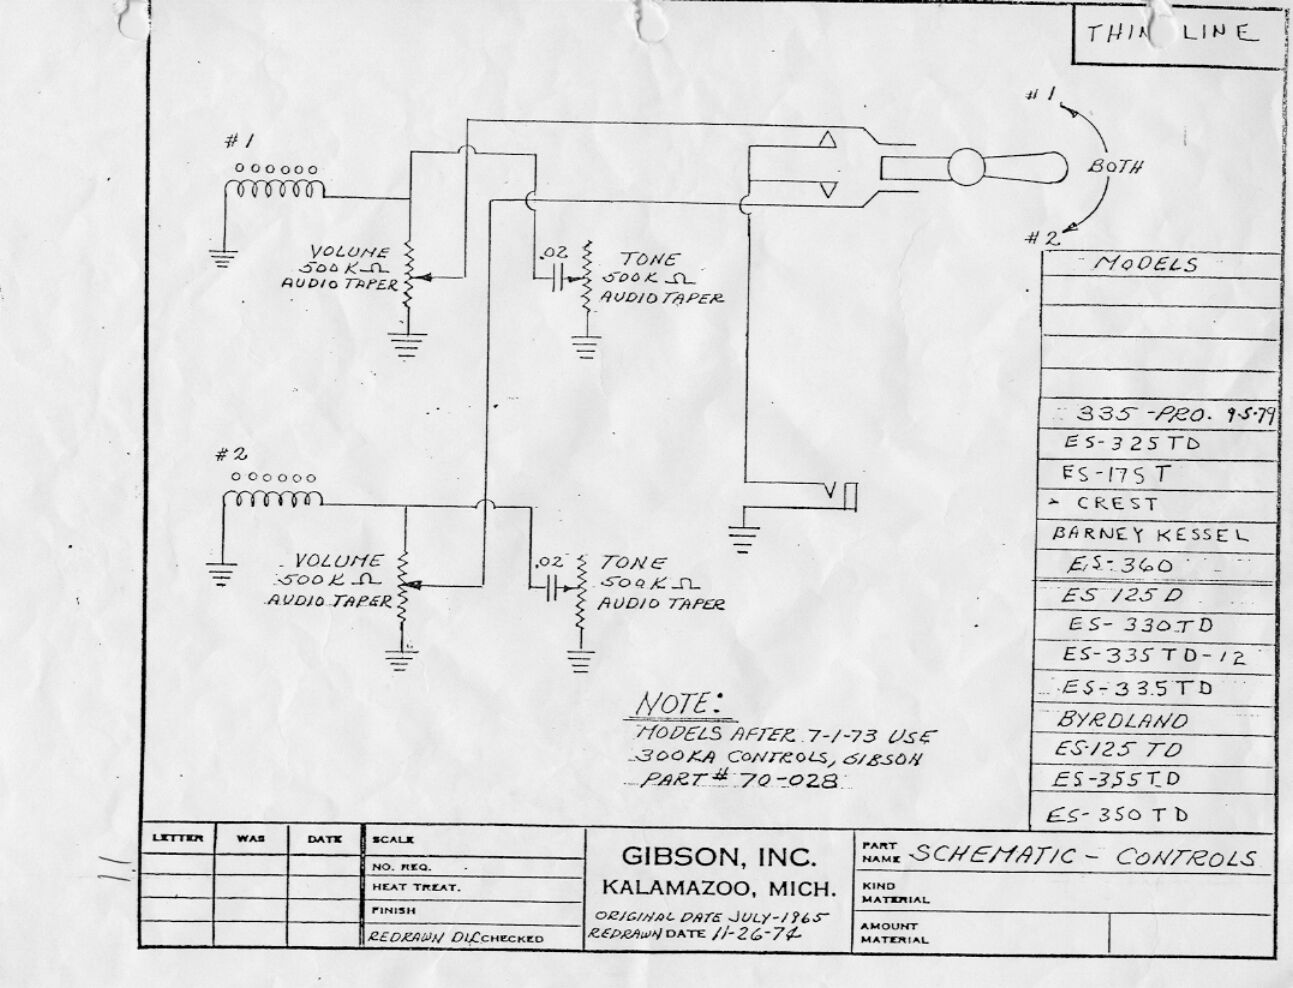 THIN LINE
# 1
BOTH
# 2
# 1
VOLUME
500K Ω
AUDIO TAPER
.02
TONE
500K Ω
AUDIO TAPER
# 2
VOLUME
500K Ω
AUDIO TAPER
.02
TONE
500K Ω
AUDIO TAPER
MODELS
335 -PRO. 9-5-79
ES-325TD
ES-175T
CREST
BARNEY KESSEL
ES-360
ES 125D
ES-330TD
ES-335TD-12
ES-335TD
BYRDLAND
ES-125 TD
ES-355TD
ES-350TD
NOTE:
MODELS AFTER 7-1-73 USE
300KA CONTROLS, GIBSON
PART# 70-028
LETTER WAS DATE
SCALE
NO. REQ.
HEAT TREAT.
FINISH
REDRAWN CHECKED
GIBSON, INC.
KALAMAZOO, MICH.
ORIGINAL DATE JULY-1965
REDRAWN DATE 11-26-74
PART NAME SCHEMATIC - CONTROLS
KIND
MATERIAL
AMOUNT
MATERIAL